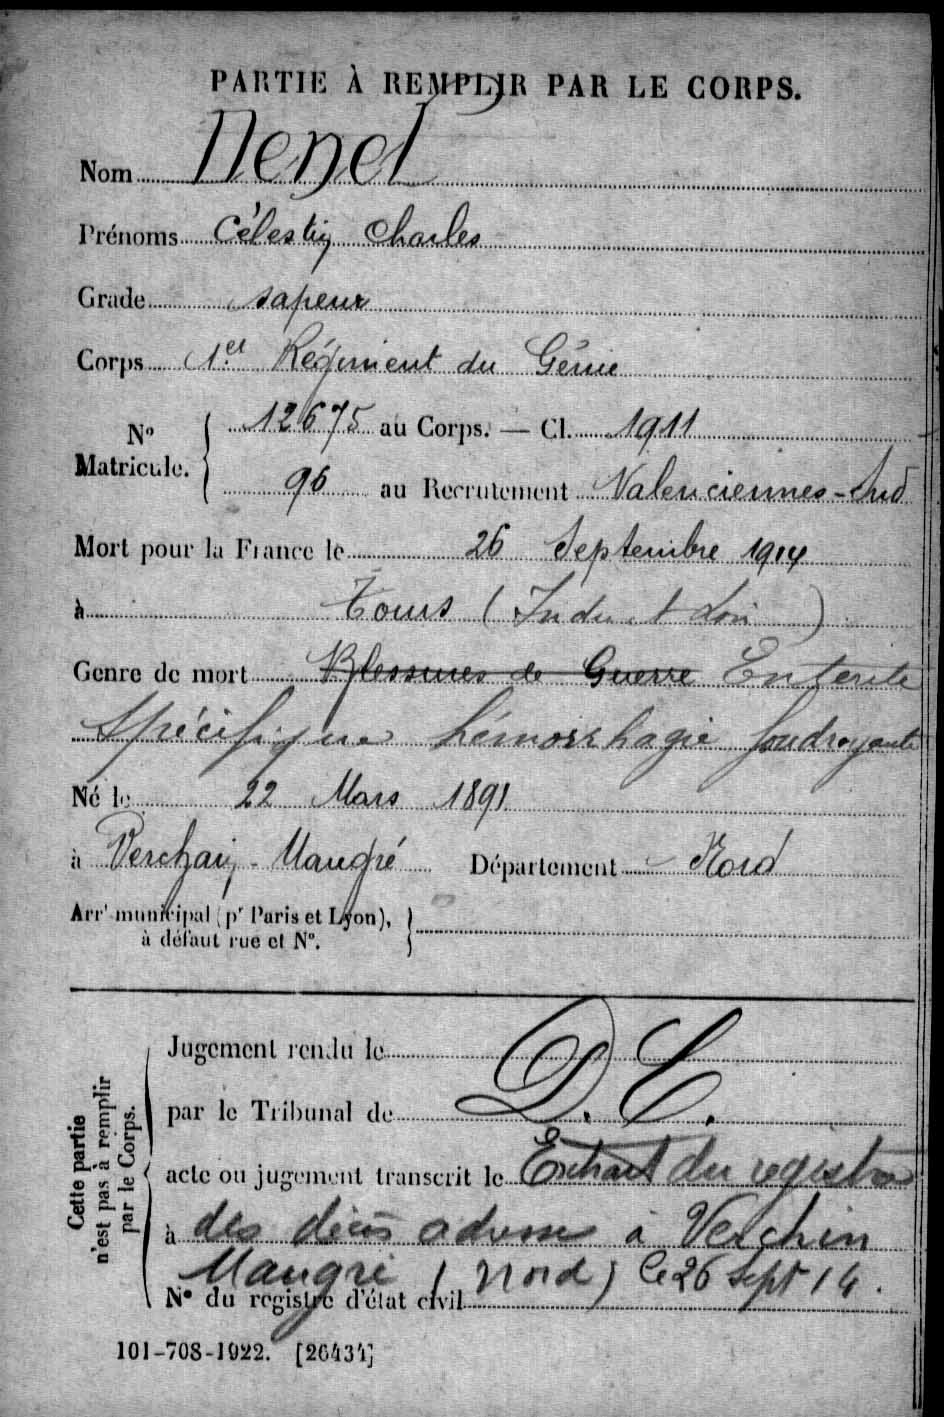 PARTIE À REMPLIR PAR LE CORPS.
Nom
Prénoms Célestin Charles
Grade sapeur
Corps 1er Régiment du Génie
No Matricule. 12675 au Corps. — Cl. 1911
96 au Recrutement Valenciennes-Sud
Mort pour la France le 26 Septembre 1914
à Tours (Indre et Loire)
Genre de mort Blessures de Guerre Entérite
Spécifique hémorrhagie foudroyante
Né le 22 Mars 1891
à Verchain-Maugré Département Nord
Arrt municipal (pr Paris et Lyon),
à défaut rue et No.
Cette partie
n'est pas à remplir
par le Corps.
Jugement rendu le
par le Tribunal de D. C.
acte ou jugement transcrit le Extrait du registre
à des décès adressé à Verchin
Maugré (Nord) le 26 Sept 14.
No du registre d'état civil
101-708-1922. [26434]